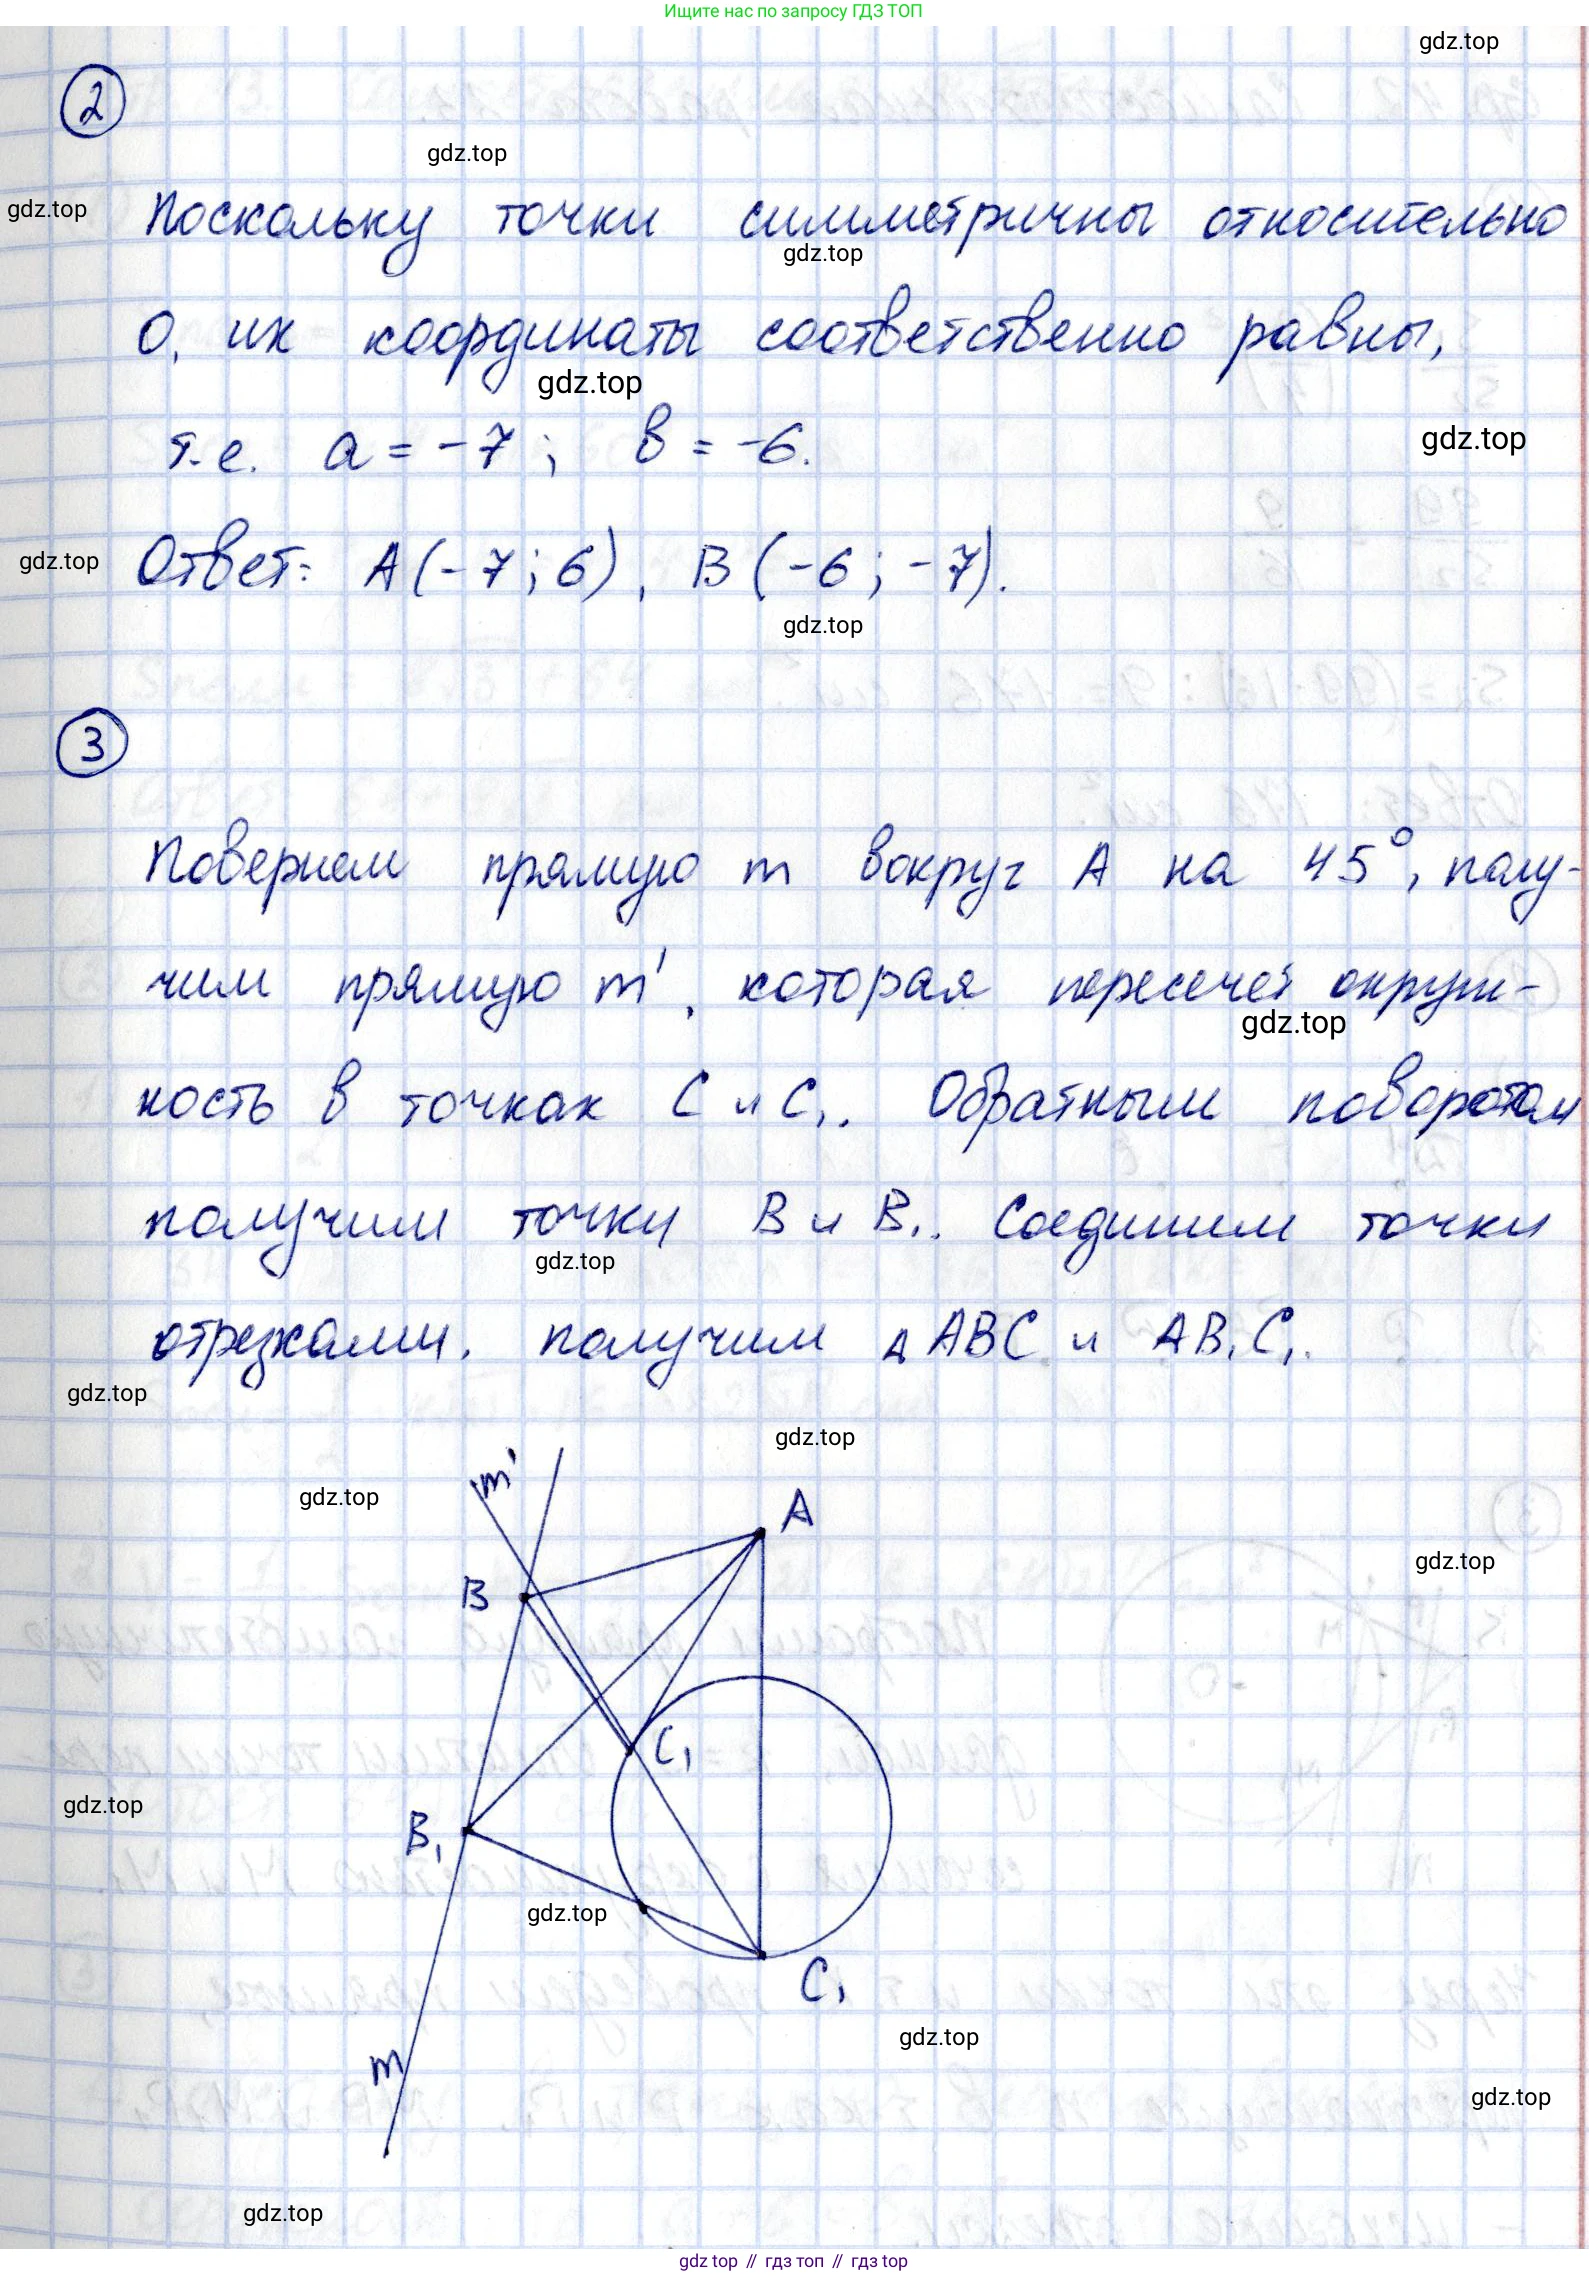 Ищите нас по запросу ГДЗ ТОП
gdz.top
2
gdz.top
gdz.top
Поскольку точки симметричны относительно
gdz.top
О, их координаты соответственно равны,
gdz.top
т.е. a = -7; b = -6.
gdz.top
gdz.top
Ответ: A(-7; 6), B(-6; -7).
gdz.top
3
Повернем прямую m вокруг A на 45°, полу-
чим прямую m', которая пересечет окруж-
gdz.top
ность в точках C и C₁. Обратным поворотом
получим точки B и B₁. Соединим точки
gdz.top
отрезками, получим △ABC и AB₁C₁.
gdz.top
gdz.top
m'
gdz.top
A
gdz.top
B
C₁
gdz.top
B₁
gdz.top
C₁
gdz.top
m
gdz.top
gdz.top
gdz top // гдз топ // гдз top